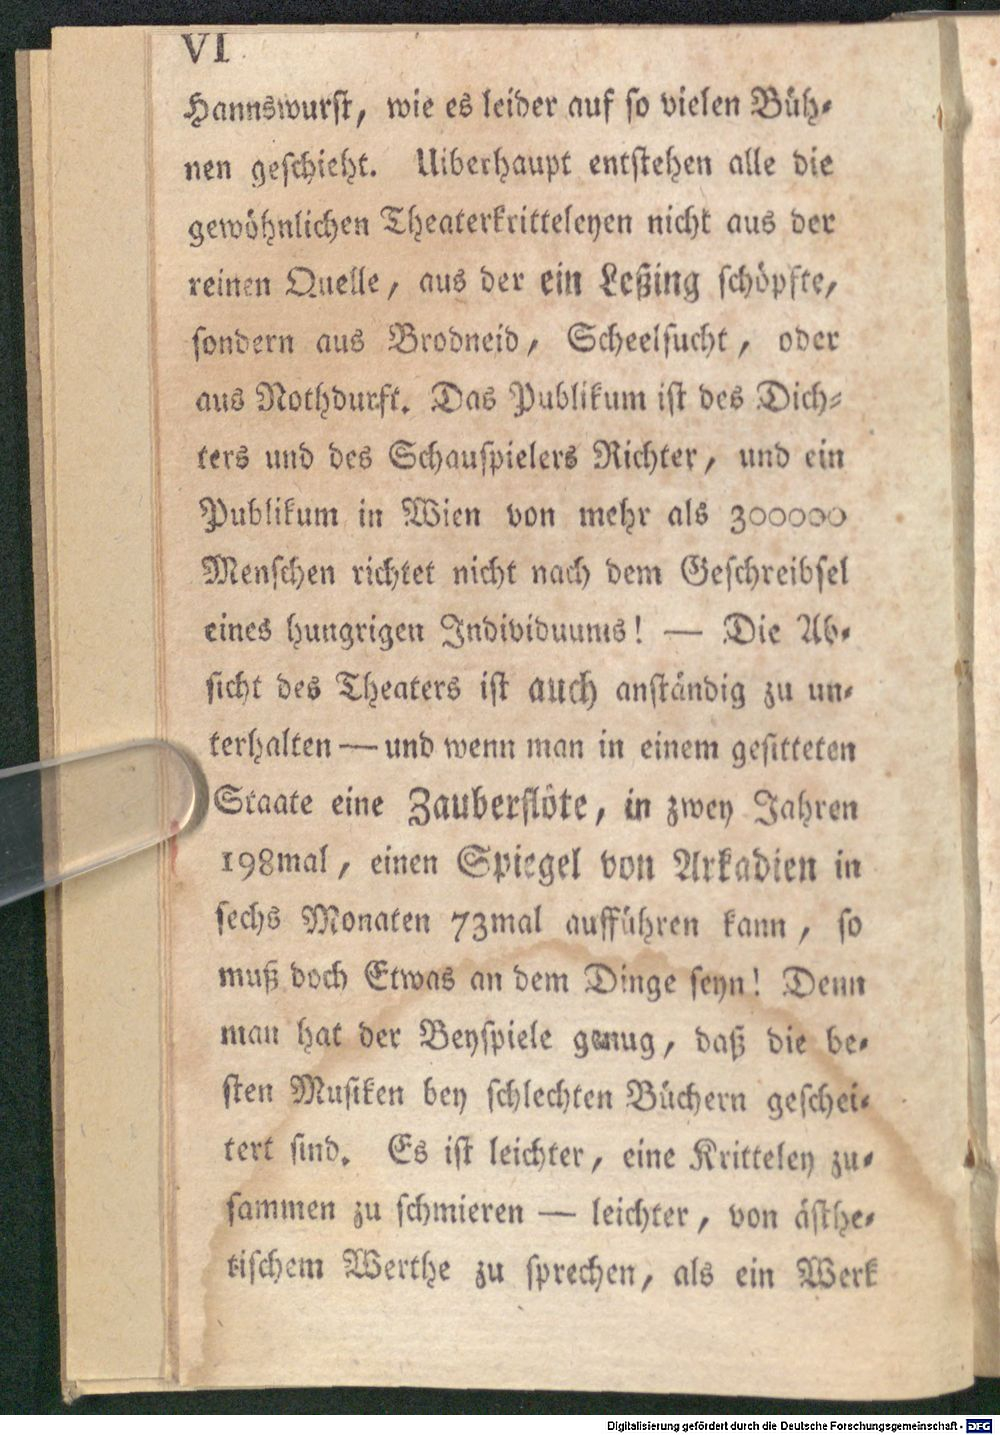 VI
Hannswurst, wie es leider auf so vielen Büh-
nen geschieht. Uiberhaupt entstehen alle die
gewöhnlichen Theaterkritteleyen nicht aus der
reinen Quelle, aus der ein Leßing schöpfte,
sondern aus Brodneid, Scheelsucht, oder
aus Nothdurft. Das Publikum ist des Dich-
ters und des Schauspielers Richter, und ein
Publikum in Wien von mehr als 300000
Menschen richtet nicht nach dem Geschreibsel
eines hungrigen Individuums! — Die Ab-
sicht des Theaters ist auch anständig zu un-
terhalten — und wenn man in einem gesitteten
Staate eine Zauberflöte, in zwey Jahren
198mal, einen Spiegel von Arkadien in
sechs Monaten 73mal aufführen kann, so
muß doch Etwas an dem Dinge seyn! Denn
man hat der Beyspiele genug, daß die be-
sten Musiken bey schlechten Büchern geschei-
tert sind. Es ist leichter, eine Kritteley zu-
sammen zu schmieren — leichter, von ästhe-
tischem Werthe zu sprechen, als ein Werk
Digitalisierung gefördert durch die Deutsche Forschungsgemeinschaft - DFG